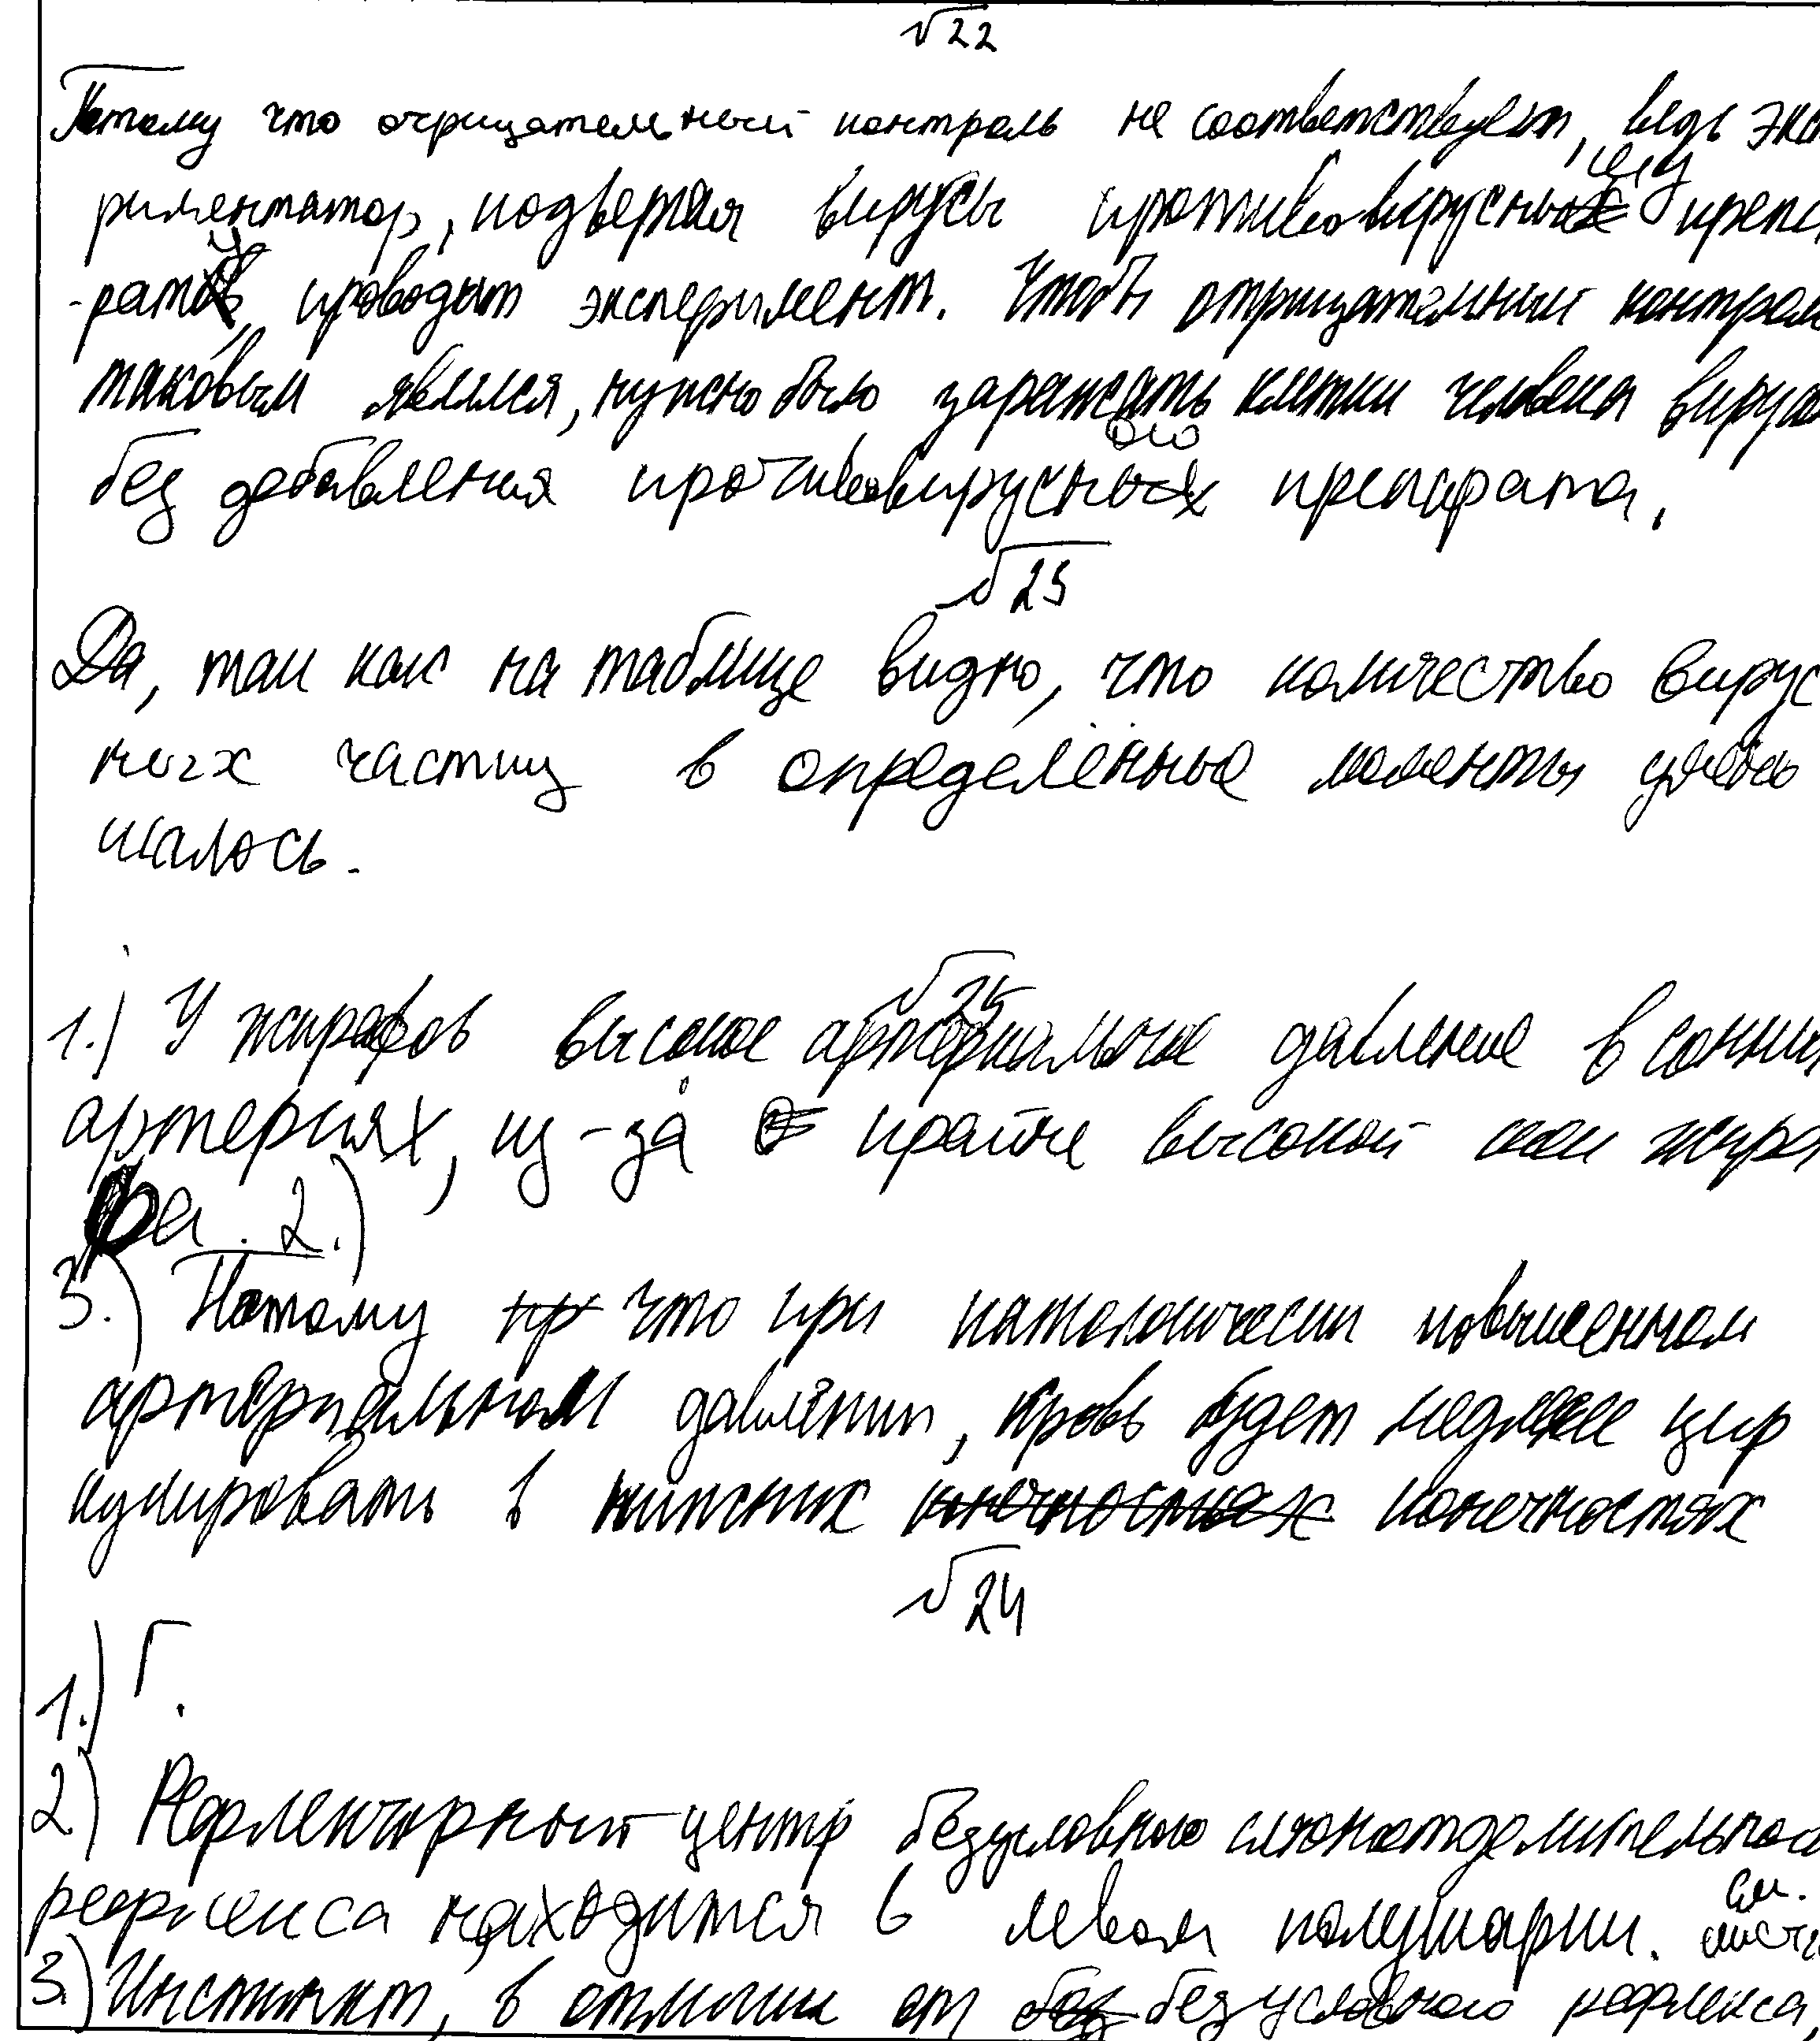 √22
Потому что отрицательный контроль не соответствует, ведь экс
риментатор, подвергая вирусы противовирусному препа
-рату, проводит эксперимент. Чтобы отрицательный контрол
таковым являлся, нужно было заражать клетки человека вирус
без добавления противовирусного препарата.
√25
Да, так как на таблице видно, что количество вирус
ных частиц в определённые моменты умень
шалось.
√25
1.) У жирафов высокое артериальное давление в сонны
артериях, из-за крайне высокой шеи жира
фа. 2.)
3.) Потому что при патологически повышенном
артериальном давлении, кровь будет медленнее цир
кулировать в нижних конечностях
√24
1.) Г.
2.) Рефлекторный центр безусловного слюноотделительного
рефлекса находится в левом полушарии. см.
3.) Инстинкт, в отличии от безусловного рефлекса,